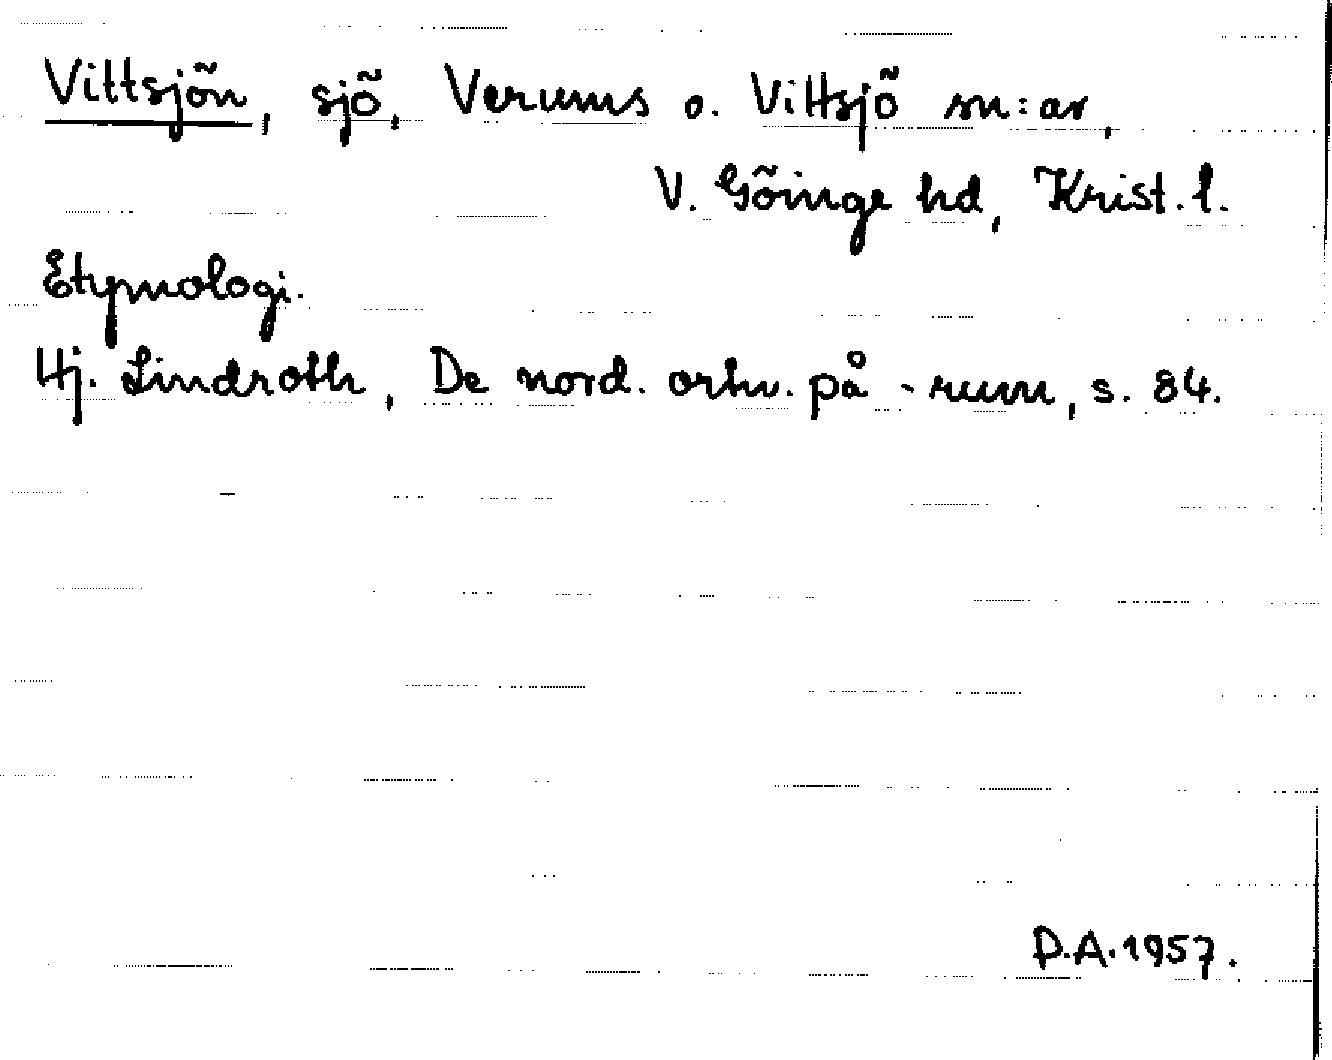 Vittsjön, sjö, Verums o. Vittsjö sn:ar,
V. Göinge hd, Krist. l.
Etymologi.
Hj. Lindroth, De nord. ortn. på -rum, s. 84.
D.A. 1957.